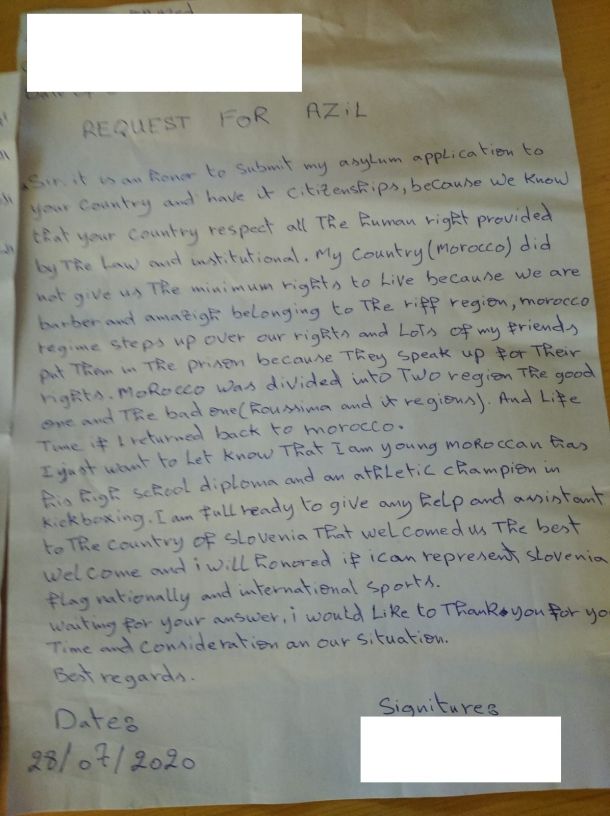 REQUEST FOR AZiL
Sir. it is an honor to submit my asylum application to
your Country and have it Citizenships, because we know
that your Country respect all The human right provided
by The Law and institutional. My Country (Morocco) did
not give us The minimum rights to Live because we are
barber and amazigh belonging to The riff region, morocco
regime steps up over our rights and Lots of my friends
put Them in The prison because They speak up for Their
rights. MoRocco was divided into Two region The good
one and The bad one (houssima and it regions). And Life
Time if I returned back to morocco.
I just want to Let know That I am young moroccan has
his high school diploma and an athletic champion in
kickboxing. I am full ready to give any help and assistant
to The country of Slovenia That welcomed us The best
welcome and i will honored if i can represent slovenia
flag nationally and international sports.
waiting for your answer, i would Like to Thank you for yo
Time and consideration an our situation.
Best regards.
Date:
Signiture:
28/07/2020